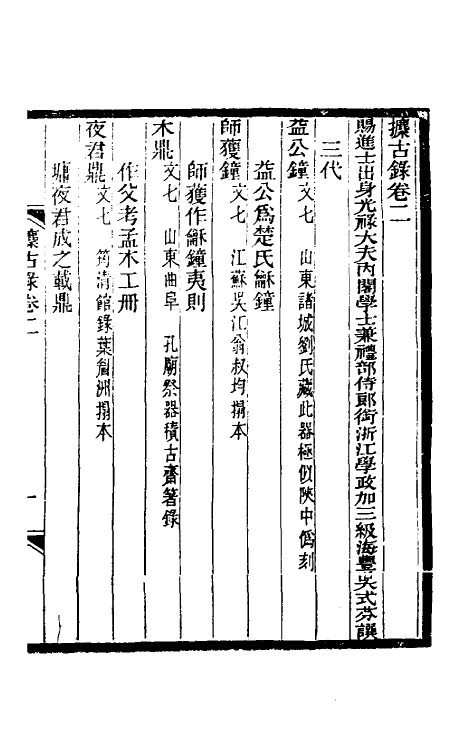 攈古錄卷二
賜進士出身光祿大夫內閣學士兼禮部侍郎銜浙江學政加三級海豐吳式芬譔
三代
益公鐘 文七 山東諸城劉氏藏此器極似陝中僞刻
益公爲楚氏龢鐘
師獲鐘 文七 江蘇吳江翁叔均搨本
師獲作龢鐘夷則
木鼎 文七 山東曲阜 孔廟祭器積古齋箸錄
作父考孟木工冊
夜君鼎 文七 筠清館錄葉劍洲搨本
坓夜君成之載鼎
攈古錄卷二
一